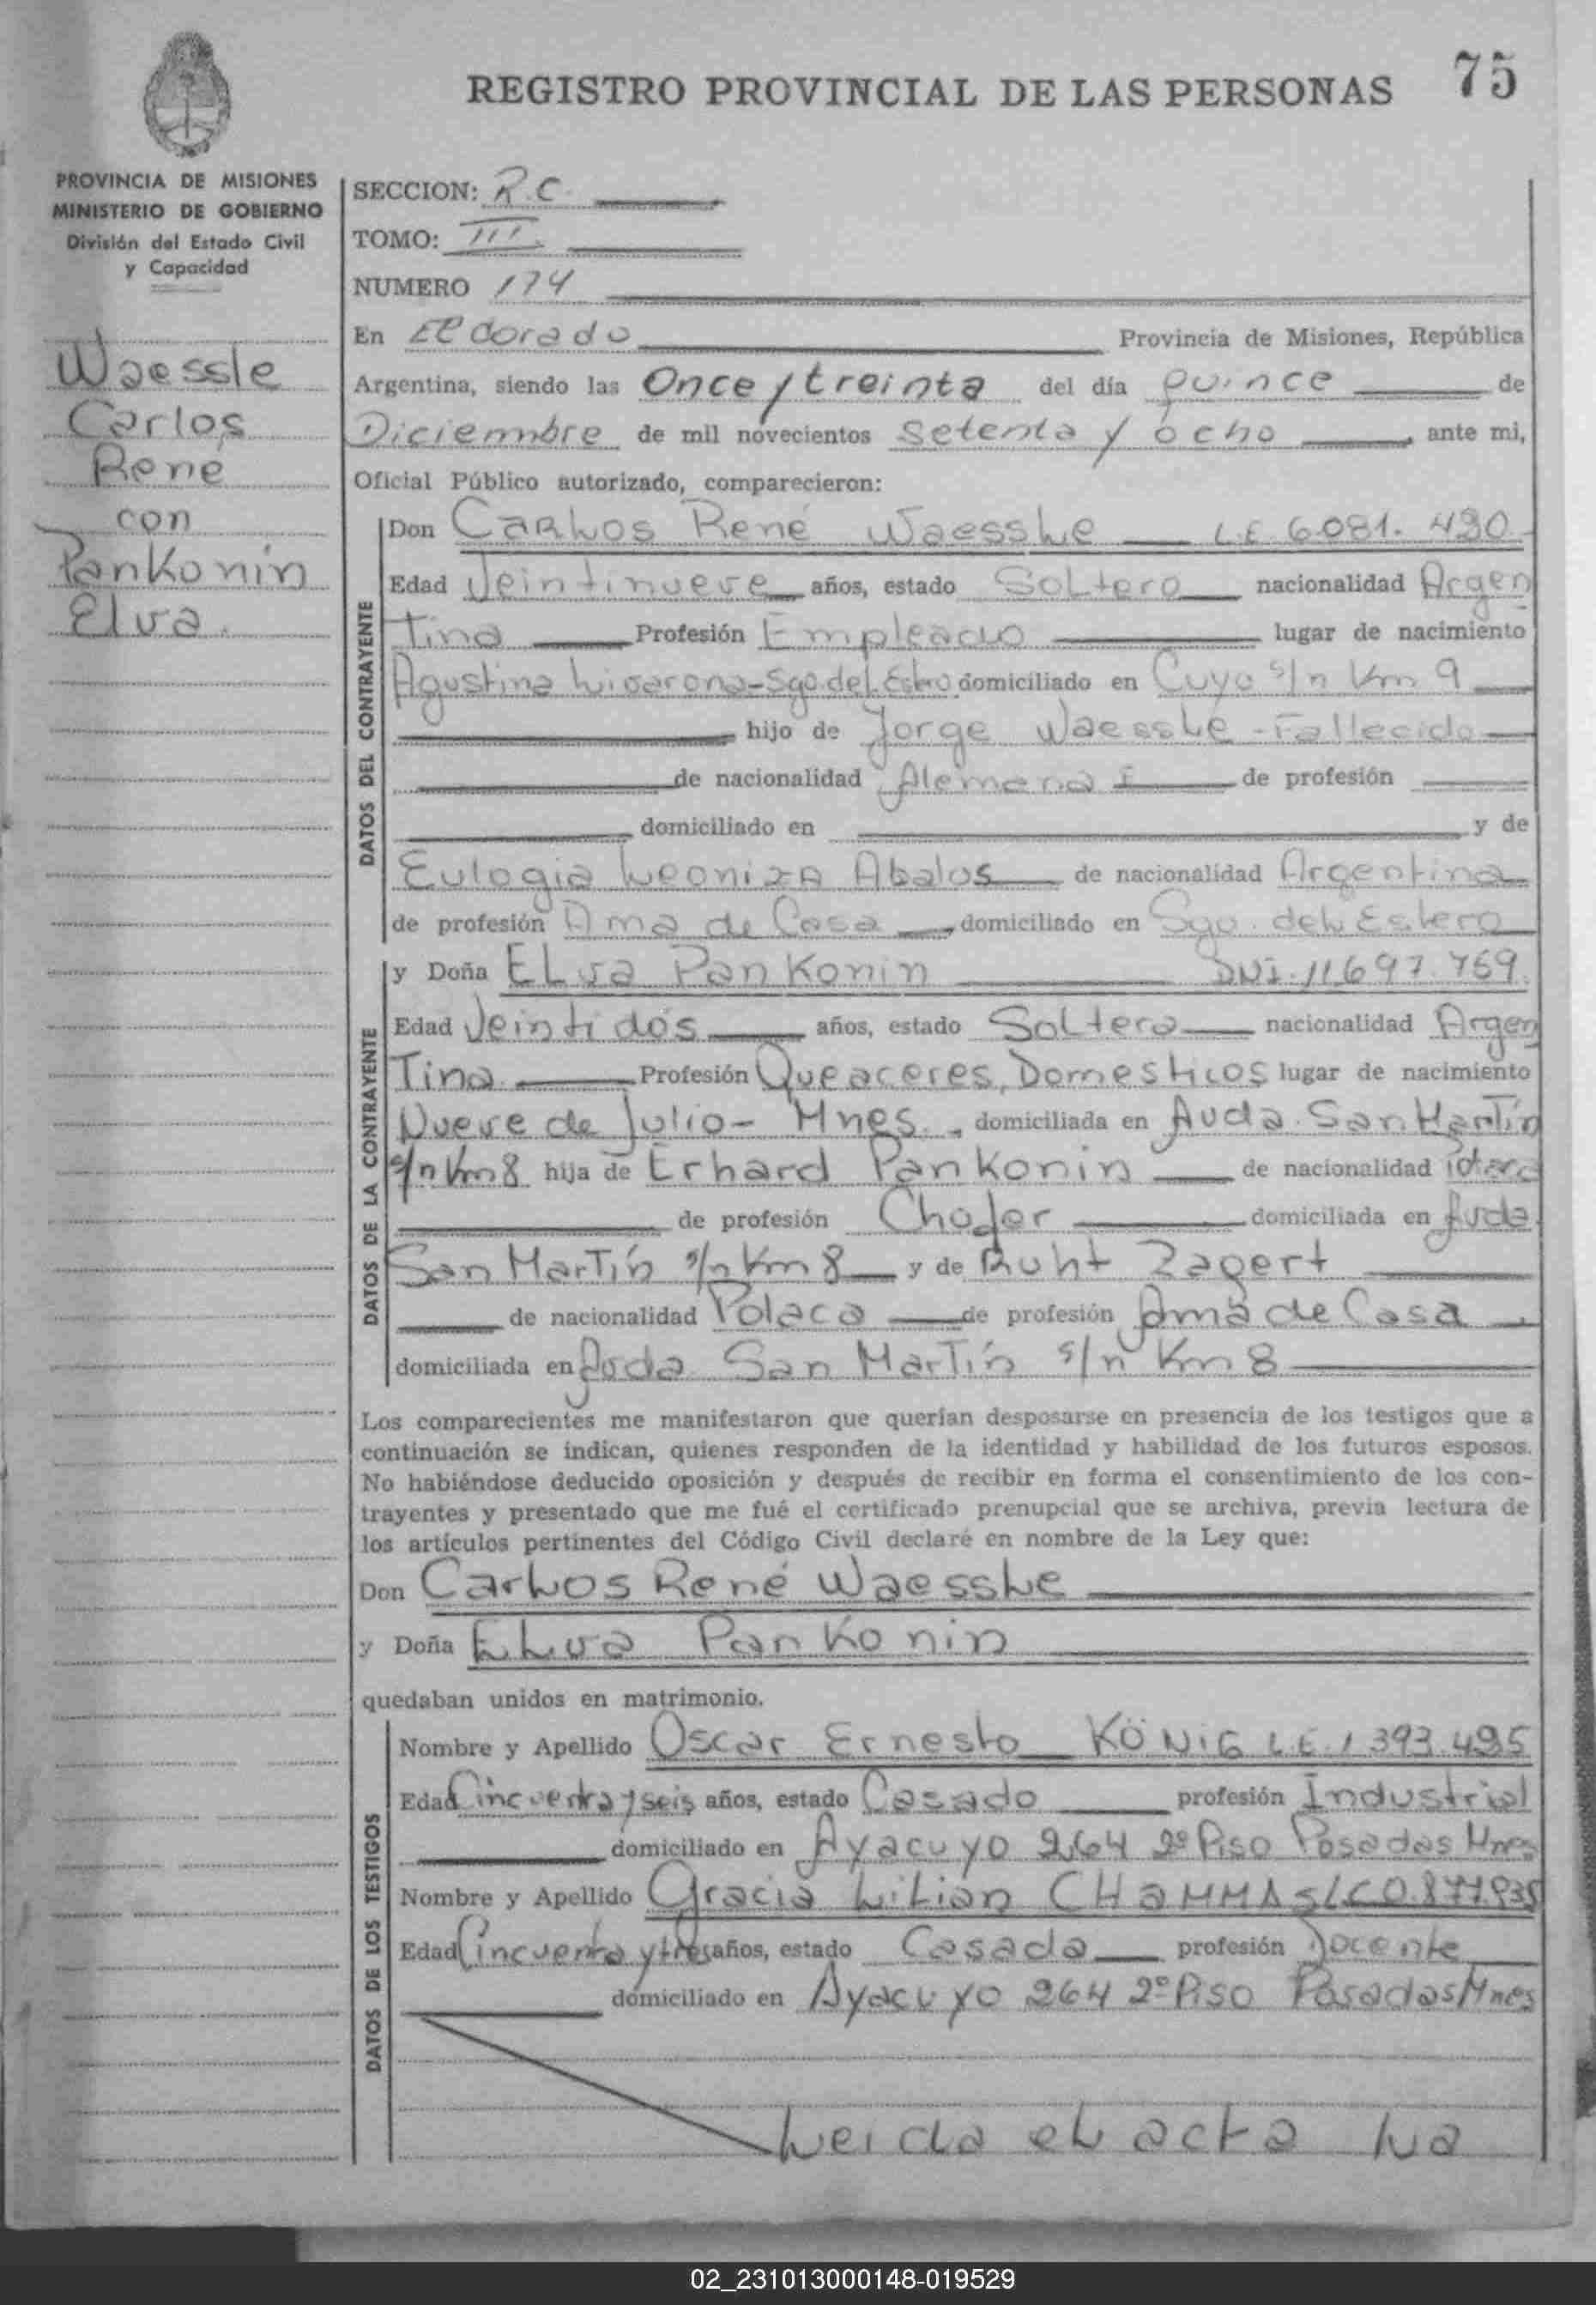 REGISTRO PROVINCIAL DE LAS PERSONAS 75
PROVINCIA DE MISIONES
MINISTERIO DE GOBIERNO
División del Estado Civil
y Capacidad
Waessle
Carlos
René
con
Pankonin
Elva.
SECCION: R.C
TOMO: III
NUMERO 174
En Eldorado Provincia de Misiones, República
Argentina, siendo las Once y treinta del día quince de
Diciembre de mil novecientos setenta y ocho, ante mi,
Oficial Público autorizado, comparecieron:
DATOS DEL CONTRAYENTE
Don Carlos René Waessle L.E. 6.081.490
Edad Veintinueve años, estado Soltero nacionalidad Argen
Tina Profesión Empleado lugar de nacimiento
Agustina Sgo. del Estero domiciliado en Cuyo s/n Km 9
hijo de Jorge Waessle - Fallecido
de nacionalidad Alemana de profesión
domiciliado en y de
Eulogia Leoniza Abalos de nacionalidad Argentina
de profesión Ama de Casa, domiciliado en Sgo. del Estero
DATOS DE LA CONTRAYENTE
y Doña Elva Pankonin DNI. 11.697.759.
Edad Veintidos años, estado Soltera nacionalidad Argen
Tina Profesión Queaceres Domesticos lugar de nacimiento
Nueve de Julio - Mnes. domiciliada en Avda. San Martín
s/n Km 8 hija de Erhard Pankonin de nacionalidad
de profesión Chofer domiciliada en Avda.
San Martín s/n Km 8 y de Ruht Zagert
de nacionalidad Polaca de profesión Ama de Casa
domiciliada en Avda. San Martín s/n Km 8
Los comparecientes me manifestaron que querían desposarse en presencia de los testigos que a
continuación se indican, quienes responden de la identidad y habilidad de los futuros esposos.
No habiéndose deducido oposición y después de recibir en forma el consentimiento de los con-
trayentes y presentado que me fué el certificado prenupcial que se archiva, previa lectura de
los artículos pertinentes del Código Civil declaré en nombre de la Ley que:
Don Carlos René Waessle
y Doña Elva Pankonin
quedaban unidos en matrimonio.
DATOS DE LOS TESTIGOS
Nombre y Apellido Oscar Ernesto KÖNIG L.E. 1.393.495
Edad Cincuenta y seis años, estado Casado profesión Industrial
domiciliado en Ayacuyo 264 2º Piso Posadas Mnes
Nombre y Apellido Gracia Lilian CHAMMAS L.C 0.877.935
Edad Cincuenta y tres años, estado Casada profesión Docente
domiciliado en Ayacuyo 264 2º Piso Posadas Mnes
Leida el acta la
02_231013000148-019529